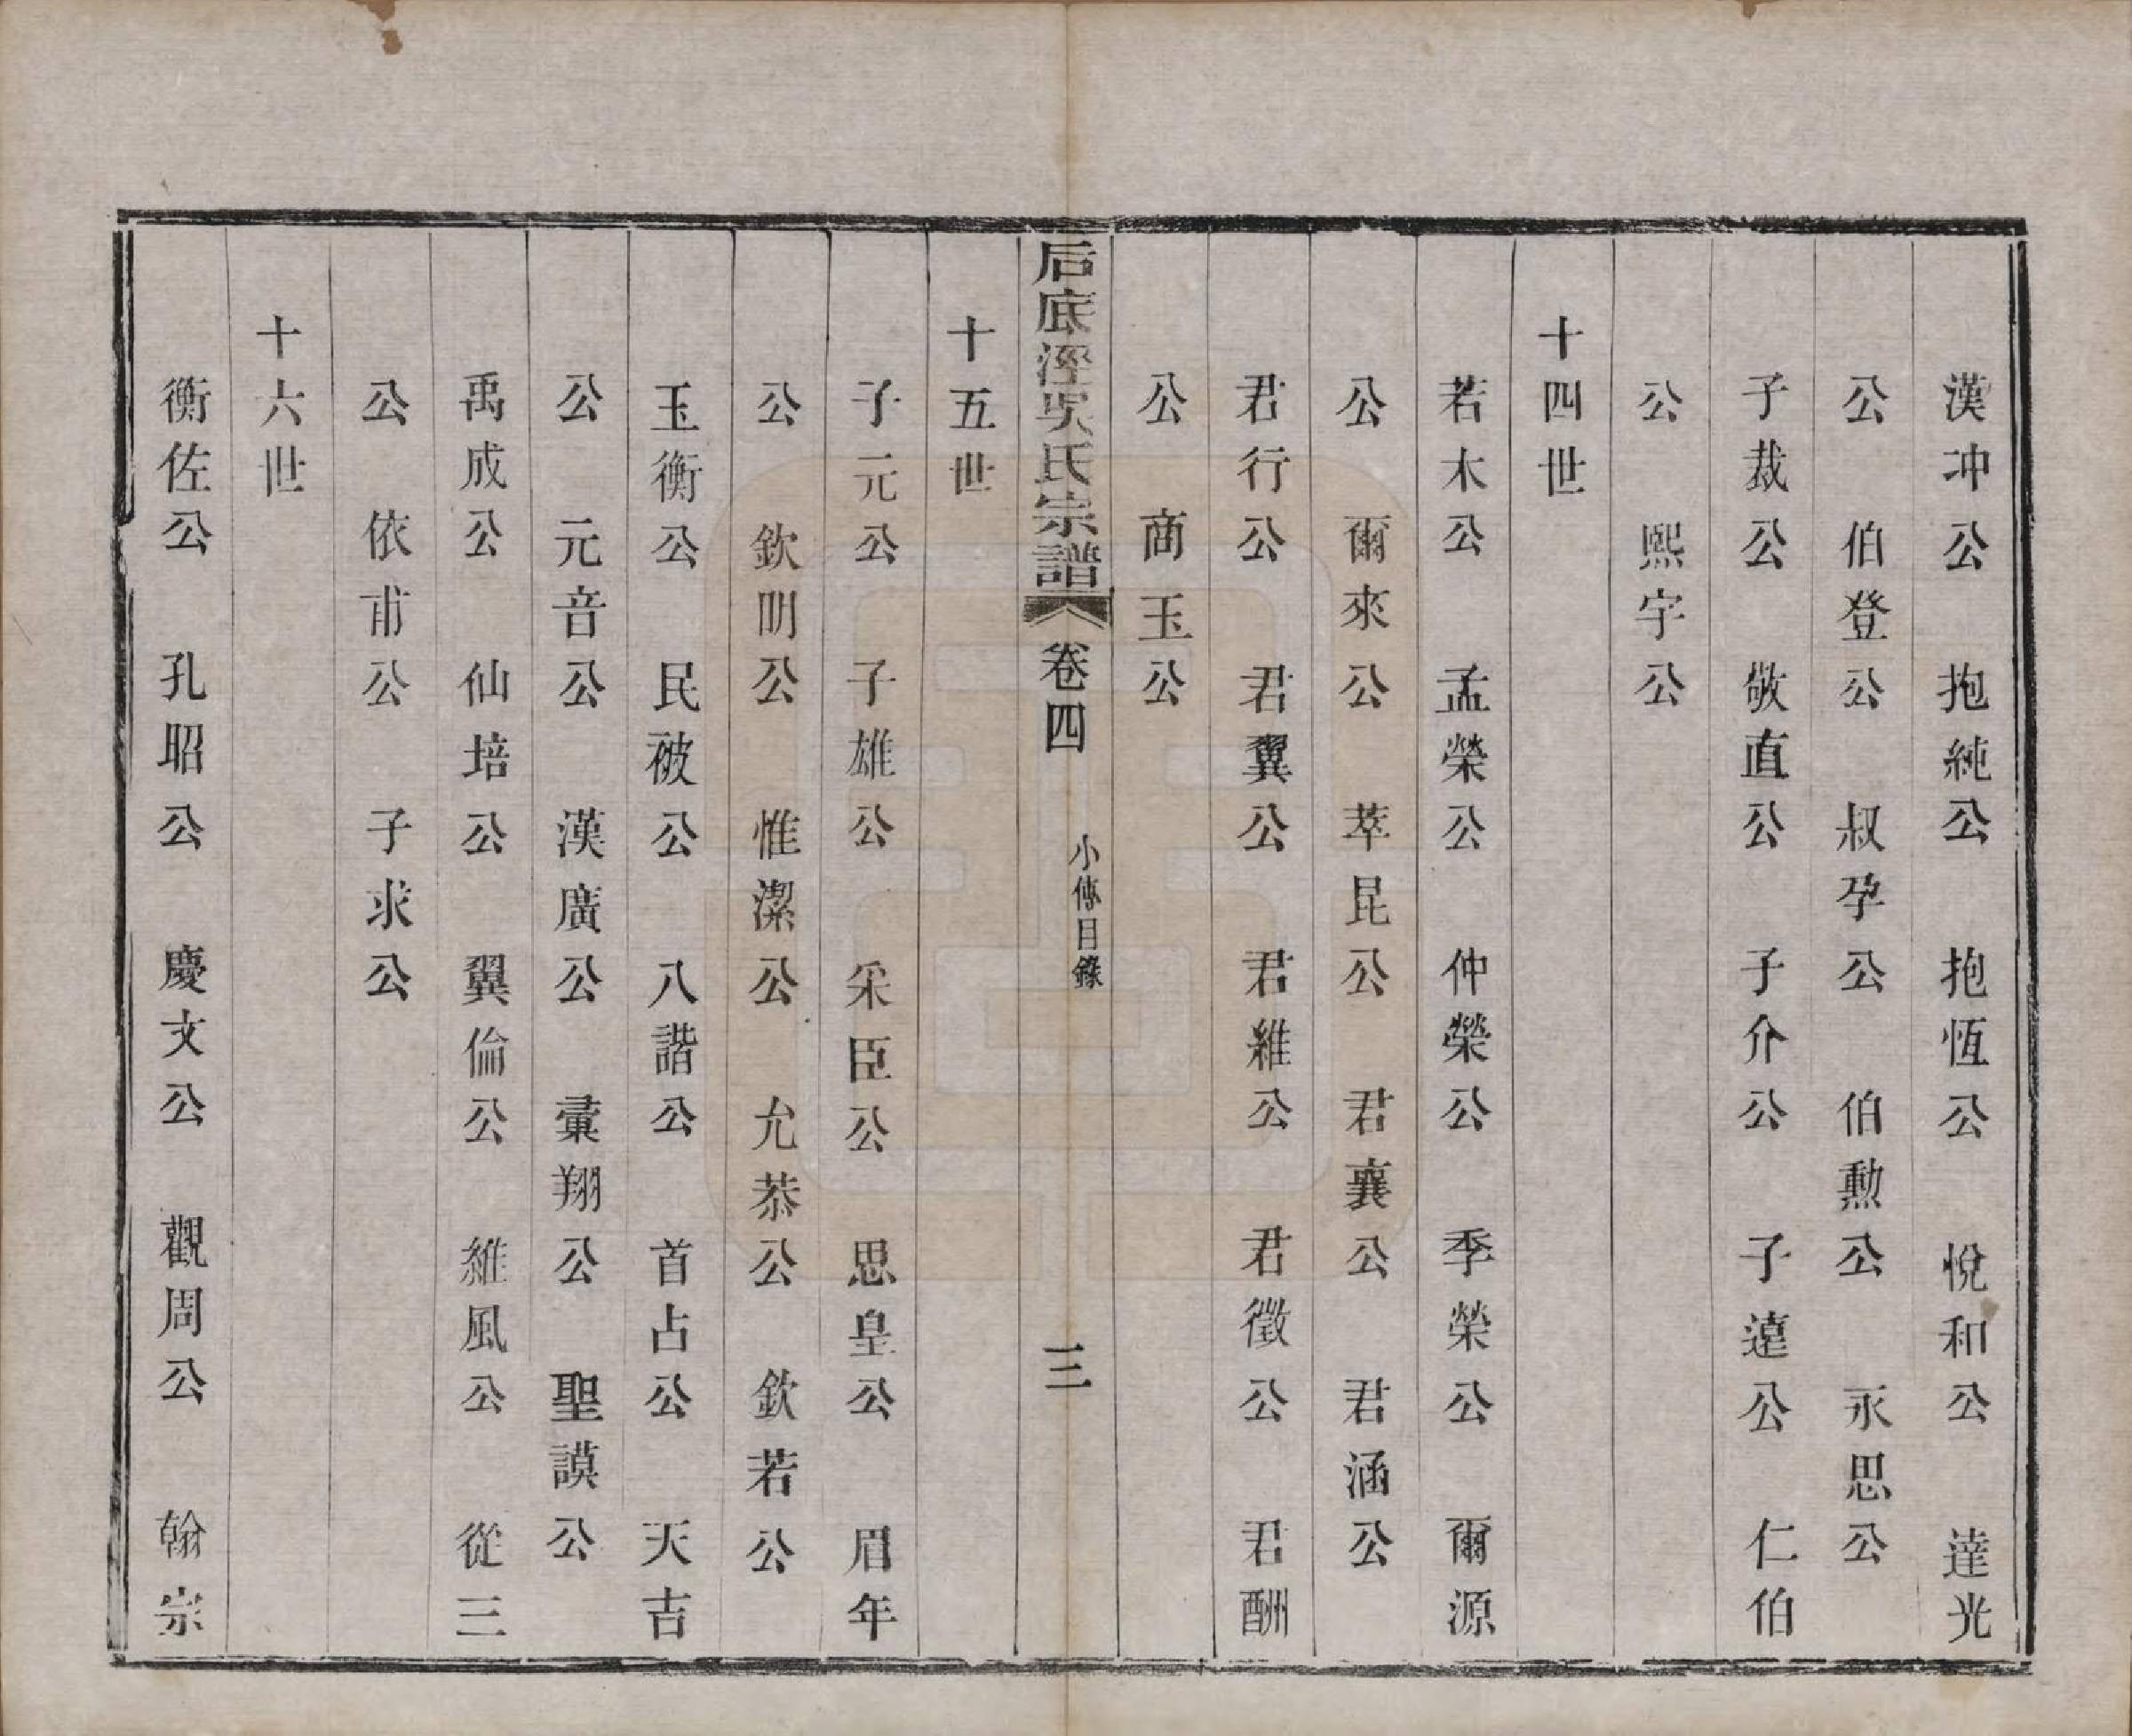 漢冲公　抱純公　抱恆公　悅和公　達光
公　伯登公　叔孕公　伯勲公　永思公
子裁公　敬直公　子介公　子達公　仁伯
公　熙宇公
十四世
若木公　孟榮公　仲榮公　季榮公　爾源
公　爾來公　萃昆公　君襄公　君涵公
君行公　君翼公　君維公　君徵公　君酬
公　商玉公
后底涇吳氏宗譜　卷四　小傳目錄　三
十五世
子元公　子雄公　采臣公　思皇公　眉年
公　欽明公　惟潔公　允恭公　欽若公
玉衡公　民被公　八諧公　首占公　天吉
公　元音公　漢廣公　彙翔公　聖謨公
禹成公　仙培公　翼倫公　維風公　從三
公　依甫公　子求公
十六世
衡佐公　孔昭公　慶文公　觀周公　翰宗